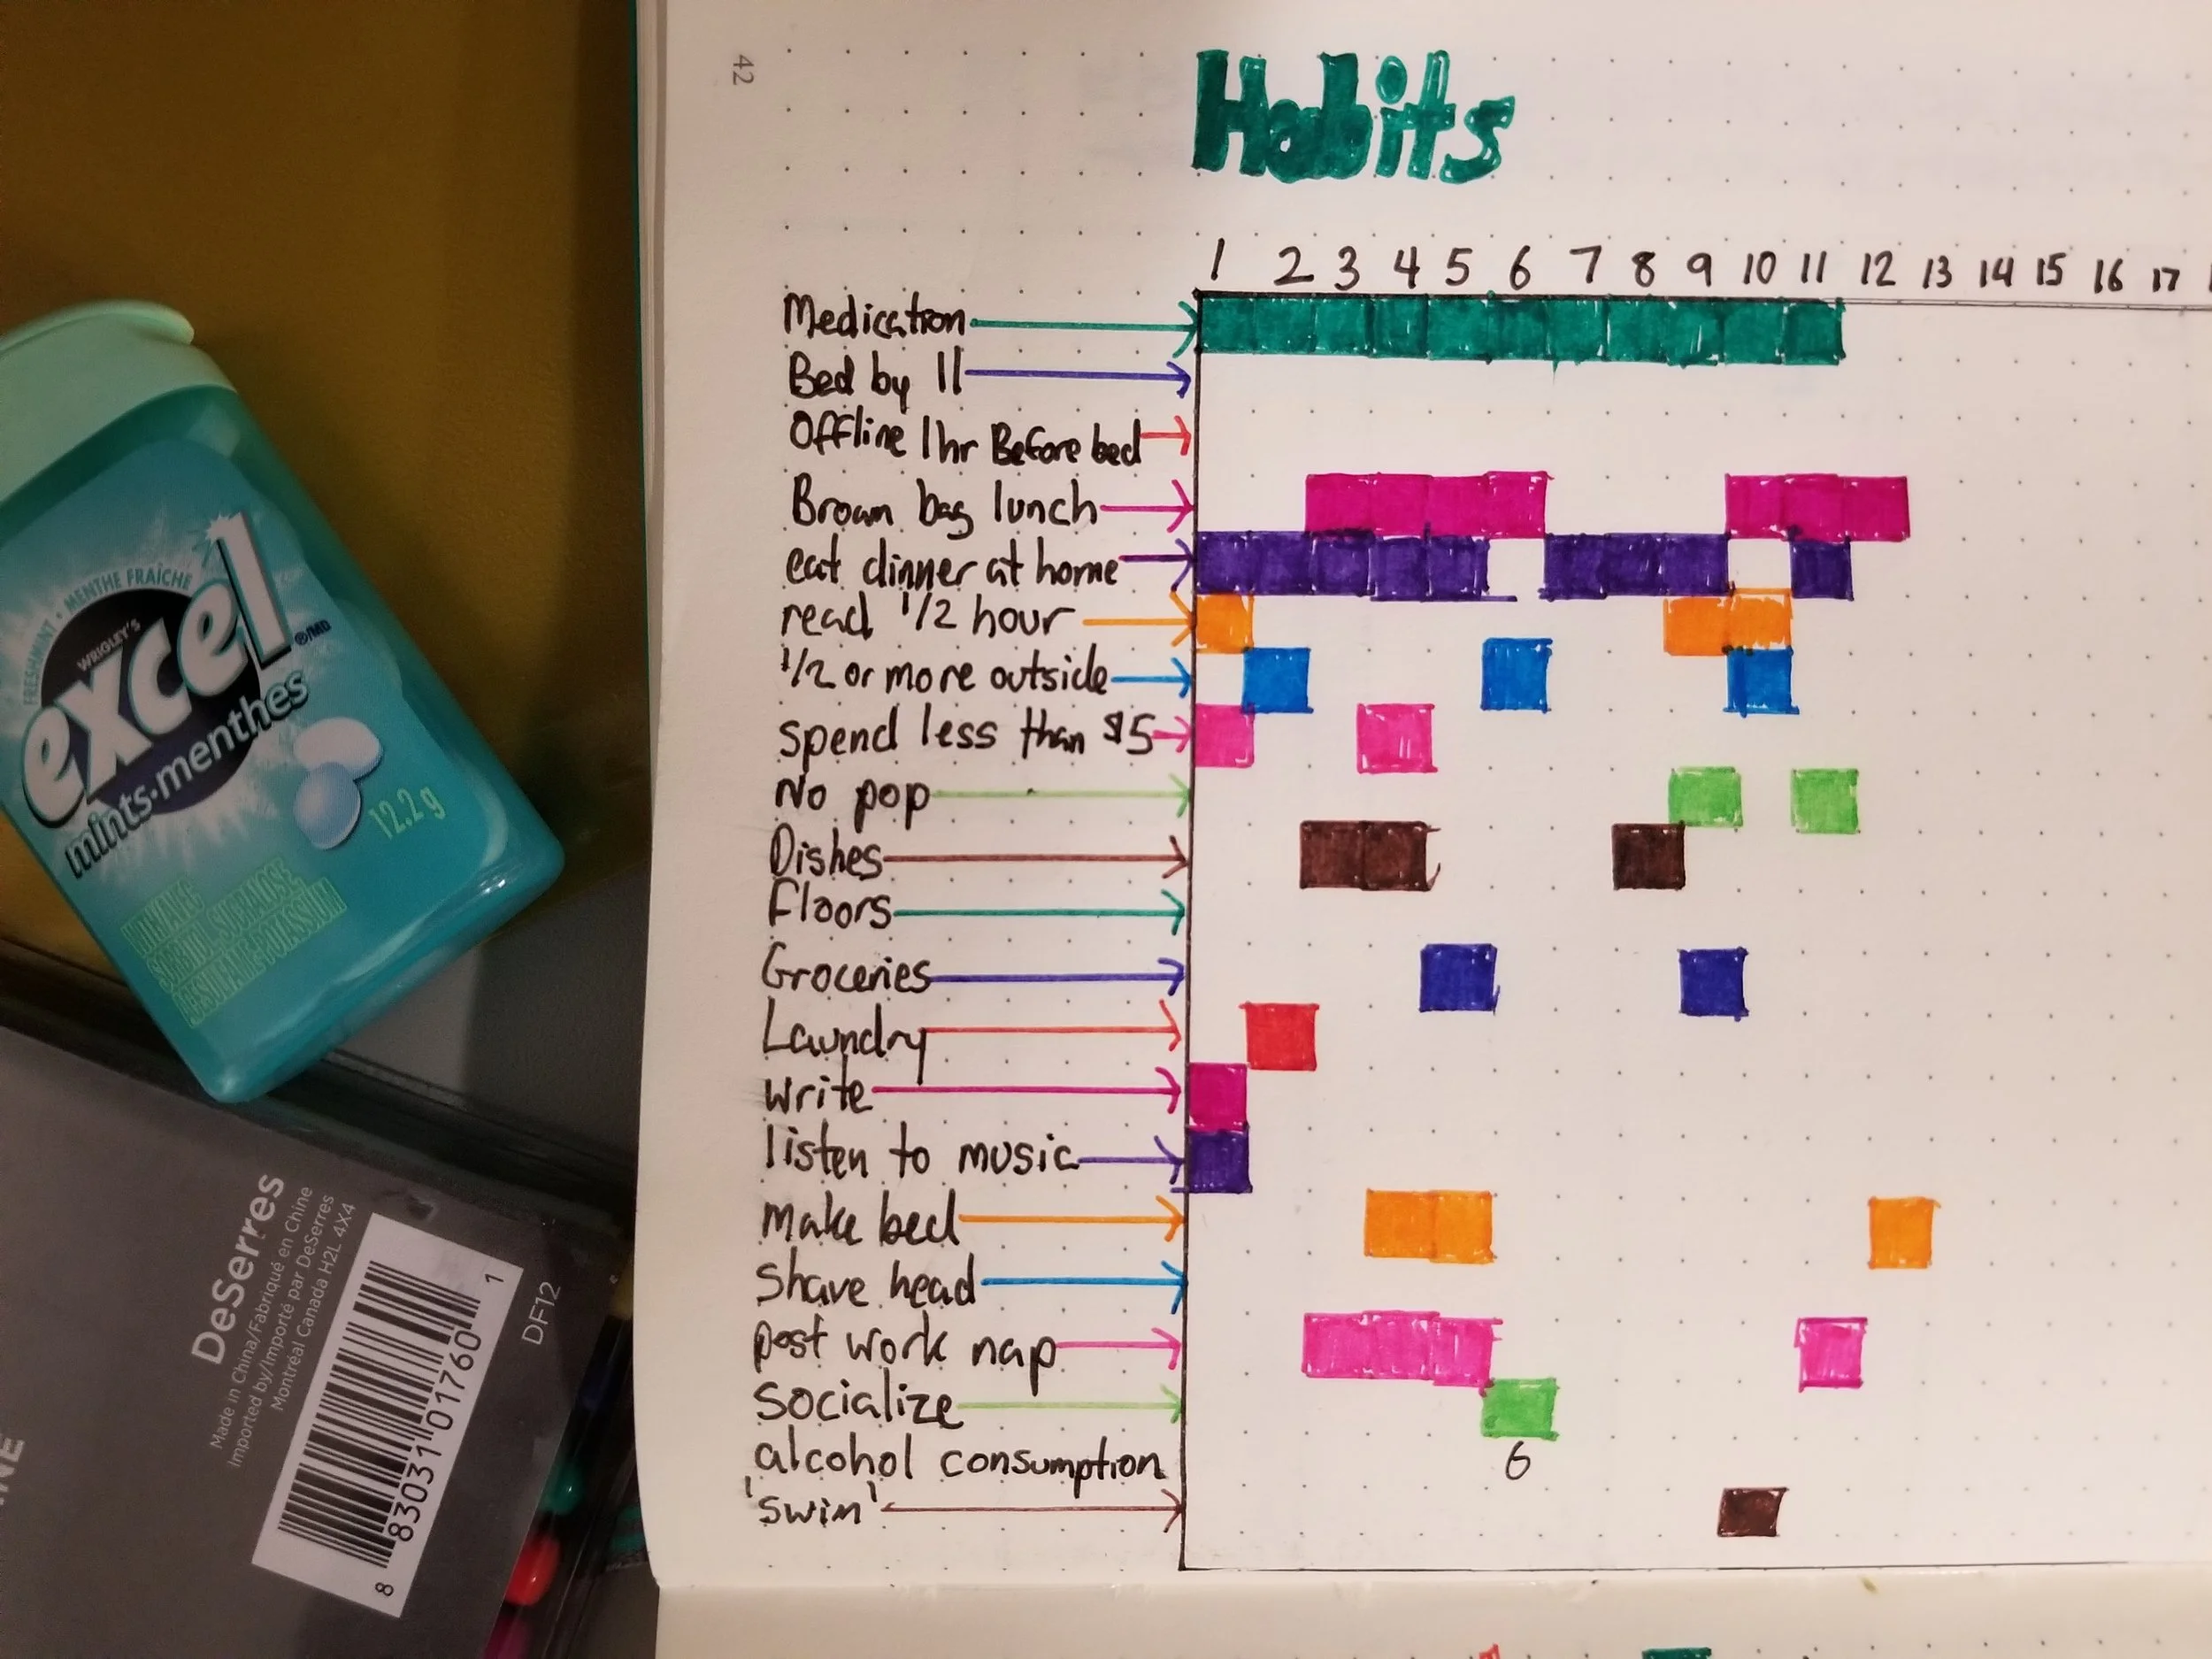 42
Habits
1 2 3 4 5 6 7 8 9 10 11 12 13 14 15 16 17
Medication
Bed by 11
Offline 1hr Before bed
Brown bag lunch
eat dinner at home
read 1/2 hour
1/2 or more outside
spend less than $5
No pop
Dishes
Floors
Groceries
Laundry
write
listen to music
make bed
Shave head
post work nap
socialize
alcohol consumption 6
'swim'
FRESHMINT • MENTHE FRAÎCHE
WRIGLEY'S
excel
®/MD
mints·menthes
12.2 g
DeSerres
Made in China/Fabriqué en Chine
Imported by/Importé par DeSerres
Montréal Canada H2L 4X4
8 83031 01760 1
DF12